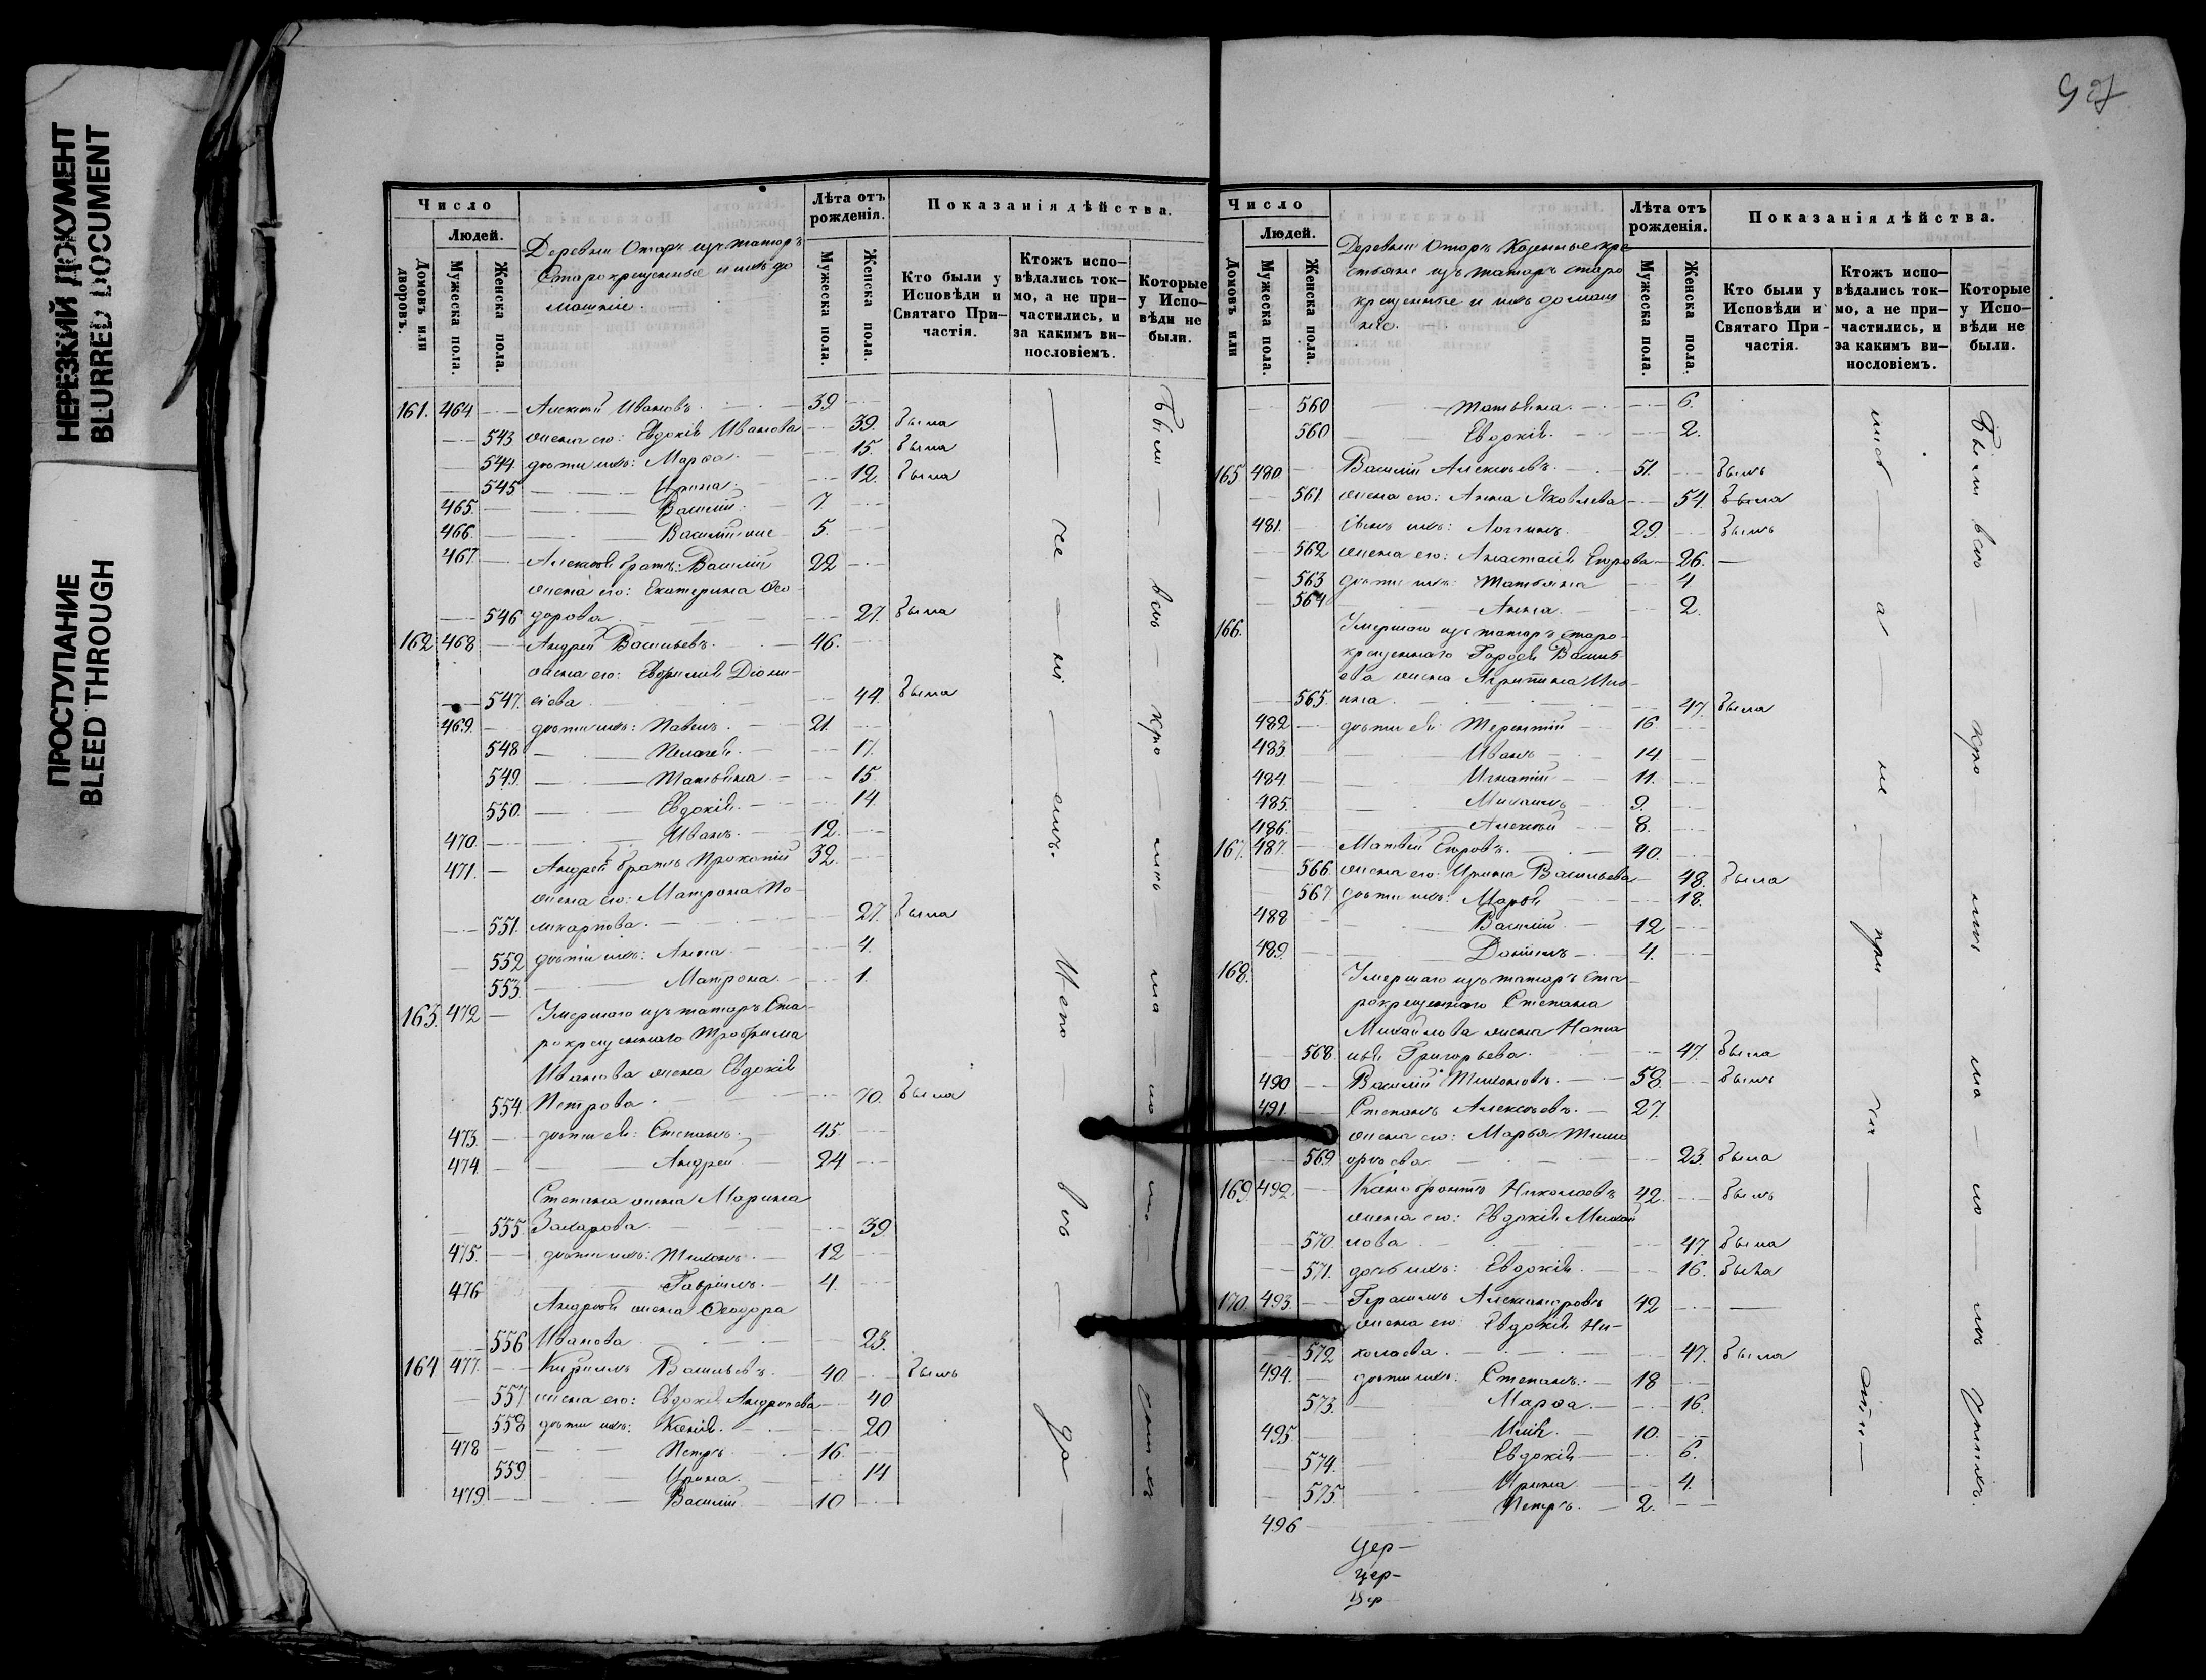 НЕРЕЗКИЙ ДОКУМЕНТ
BLURRED DOCUMENT
ПРОСТУПАНИЕ
BLEED THROUGH
Число
Людей.
Домовъ или дворовъ.
Мужеска пола.
Женска пола.
Деревни Отаръ изъ татаръ
Старокрещенные и ихъ до
машніи.
Лѣта отъ рожденія.
Мужеска пола.
Женска пола.
Показанія дѣйства.
Кто были у Исповѣди и Святаго При-
частія.
Ктожъ испо-
вѣдались ток-
мо, а не при-
частились, и
за какимъ ви-
нословіемъ.
Которые
у Испо-
вѣди не
были.
161. 464 Алексѣй Ивановъ. 39
543 жена его: Евдокія Иванова 39. была
544 дѣти ихъ: Марѳа 15. была
545 Ирина 12. была
465. Василій 7.
466. Василій же 5.
467. Алексѣя братъ: Василій 22
жена его: Екатерина Ѳео-
546 дорова. 27. была
162 468 Андрей Васильевъ. 46.
жена его: Евфимія Діони-
547. сіева 44. была
469. дѣти ихъ: Павелъ. 21.
548 Пелагея. 17.
549. Татьяна 15.
550. Евдокія. 14
470. Иванъ. 12.
471. Андрея братъ Прокопій 32.
жена его: Матрона По-
551. ликарпова. 27. была
552 дѣти ихъ: Анна 4.
553. Матрона. 1.
163. 472 Умершаго изъ татаръ Ста-
рокрещеннаго Трофима
Иванова жена Евдокія
554 Петрова. 70. была
473. дѣти ея: Степанъ. 45.
474. Андрей 24
Степана жена Марина
555. Захарова. 39
475. дѣти ихъ: Тихонъ. 12
476 Гавріилъ. 4.
Андрея жена Ѳеодора
556 Иванова 23.
164 477. Кириллъ Васильевъ. 40. былъ
557 жена его: Евдокія Андреева 40
558 дѣти ихъ: Ксенія. 20
478 Петръ. 16.
559. Ирина. 14
479 Василій. 10
Число
Людей.
Домовъ или
Мужеска пола.
Женска пола.
Деревни Отаръ Казенные кре
стьяне изъ татаръ старо
крещенные и ихъ домаш
ніе.
Лѣта отъ рожденія.
Мужеска пола.
Женска пола.
Показанія дѣйства.
Кто были у
Исповѣди и
Святаго При-
частія.
Ктожъ испо-
вѣдались ток-
мо, а не при-
частились, и
за какимъ ви-
нословіемъ.
Которые
у Испо-
вѣди не
были.
560 Татьяна. 6.
560 Евдокія. 2.
165 480 Василій Алексѣевъ. 51. былъ
561 жена его: Анна Яковлева 54. была
481. сынъ ихъ: Логгинъ. 29. былъ
562 жена его: Анастасія Егорова 26.
563 дѣти ихъ: Татьяна 4
564 Анна. 2.
166. Умершаго изъ татаръ старо-
крещеннаго Гордѣя Василь-
ева жена Агрипина Иль-
565. ина 47. была
482 дѣти ея: Терентій 16.
483 Иванъ 14
484 Игнатій 11.
485. Михаилъ 9.
486. Алексѣй 8.
167. 487. Матвей Егоровъ. 40.
566 жена его: Ирина Васильева 48. была
567 дѣти ихъ: Марья 18.
488 Василій 12
489. Даніилъ 4.
168. Умершаго изъ татаръ ста-
рокрещеннаго Степана
Михайлова жена Ната
568. лья Григорьева. 47. была
490 Василій Тихоновъ. 58. былъ
491. Степанъ Алексѣевъ. 27.
жена его: Марѳа Тимо
569 ѳеева. 23. была
169 492. Ксенофонтъ Николаевъ 42. былъ
жена его: Евдокія Михай
570. лова 47. была
571. дочь ихъ: Евдокія. 16. была
170. 493 Герасимъ Александровъ 42
жена его: Евдокія Ни-
572 колаева. 47. была
494. дѣти ихъ: Степанъ. 18
573. Марѳа. 16.
495. Илія. 10.
574. Евдокія 6.
575. Ирина 4.
496 Петръ. 2.
Цер-
Цер-
Цер